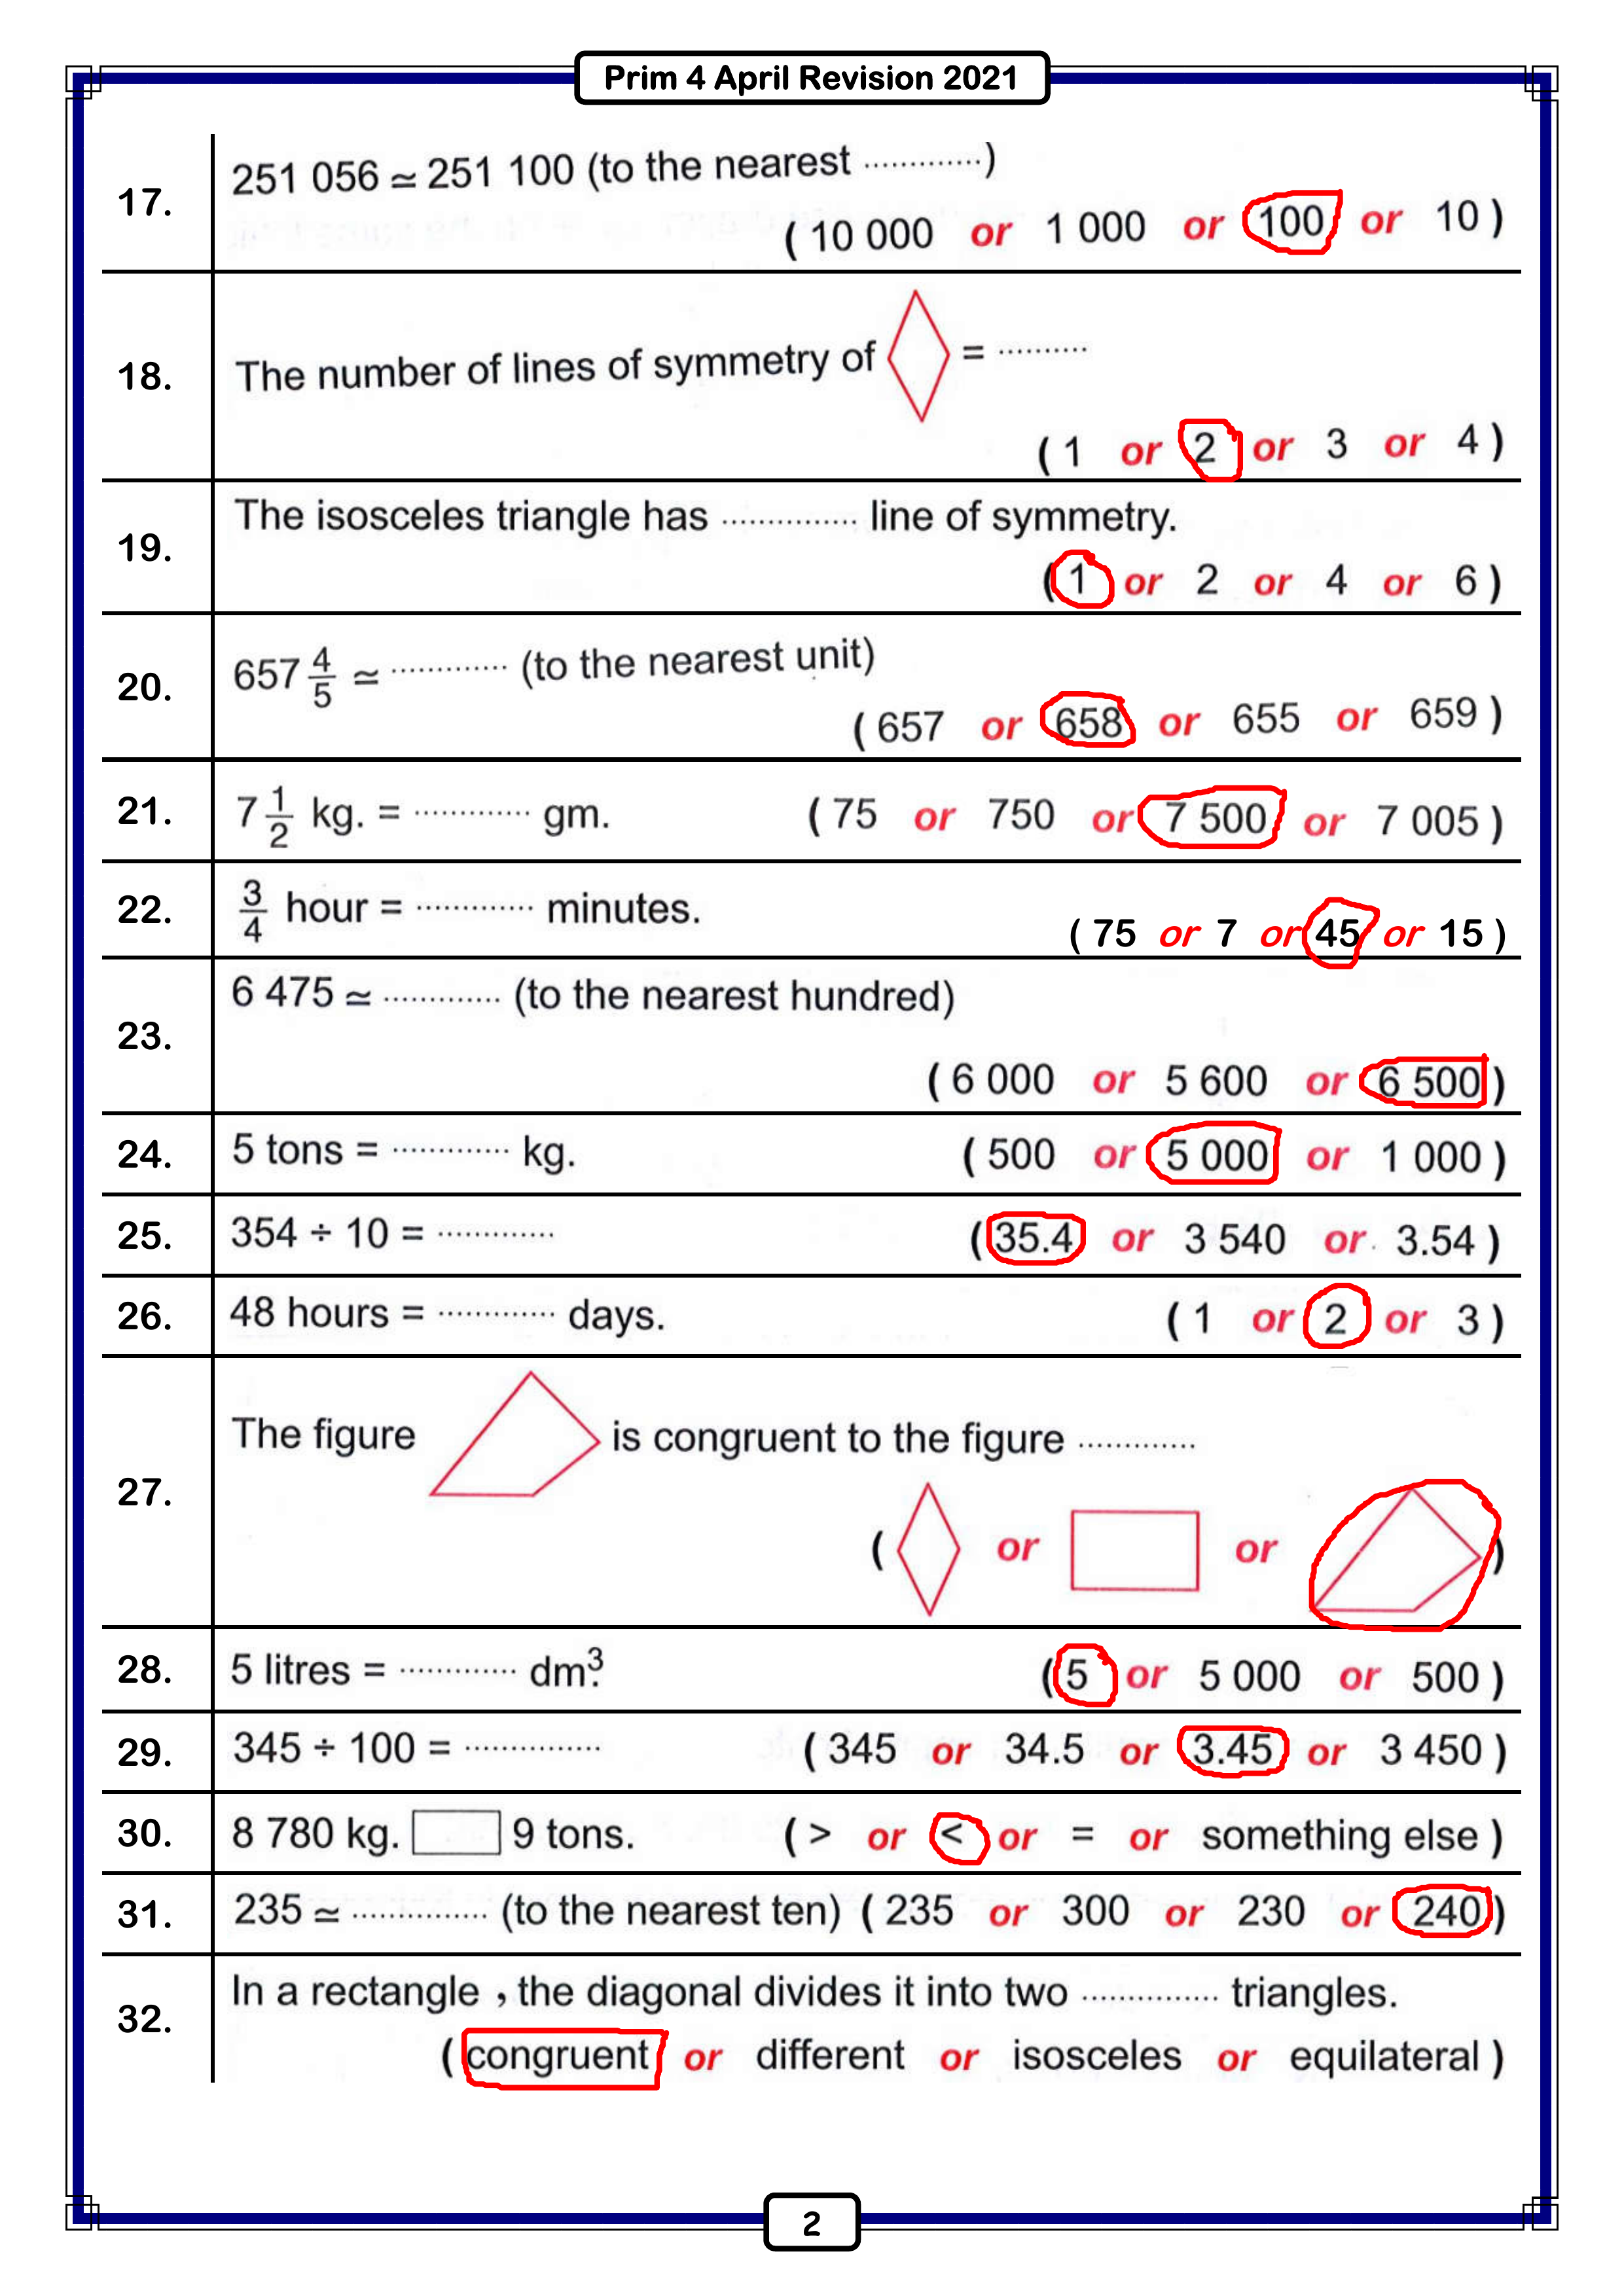 Prim 4 April Revision 2021
17. 251 056 ≃ 251 100 (to the nearest .............)
( 10 000 or 1 000 or 100 or 10 )
18. The number of lines of symmetry of = ..........
( 1 or 2 or 3 or 4 )
19. The isosceles triangle has ............... line of symmetry.
( 1 or 2 or 4 or 6 )
20. 657 4/5 ≃ ............. (to the nearest unit)
( 657 or 658 or 655 or 659 )
21. 7 1/2 kg. = ............. gm. ( 75 or 750 or 7 500 or 7 005 )
22. 3/4 hour = ............. minutes. ( 75 or 7 or 45 or 15 )
23. 6 475 ≃ ............. (to the nearest hundred)
( 6 000 or 5 600 or 6 500 )
24. 5 tons = ............. kg. ( 500 or 5 000 or 1 000 )
25. 354 ÷ 10 = ............. ( 35.4 or 3 540 or 3.54 )
26. 48 hours = ............. days. ( 1 or 2 or 3 )
27. The figure is congruent to the figure .............
( or or )
28. 5 litres = ............. dm³. ( 5 or 5 000 or 500 )
29. 345 ÷ 100 = ............... ( 345 or 34.5 or 3.45 or 3 450 )
30. 8 780 kg. 9 tons. ( > or < or = or something else )
31. 235 ≃ ............... (to the nearest ten) ( 235 or 300 or 230 or 240 )
32. In a rectangle , the diagonal divides it into two ............... triangles.
( congruent or different or isosceles or equilateral )
2